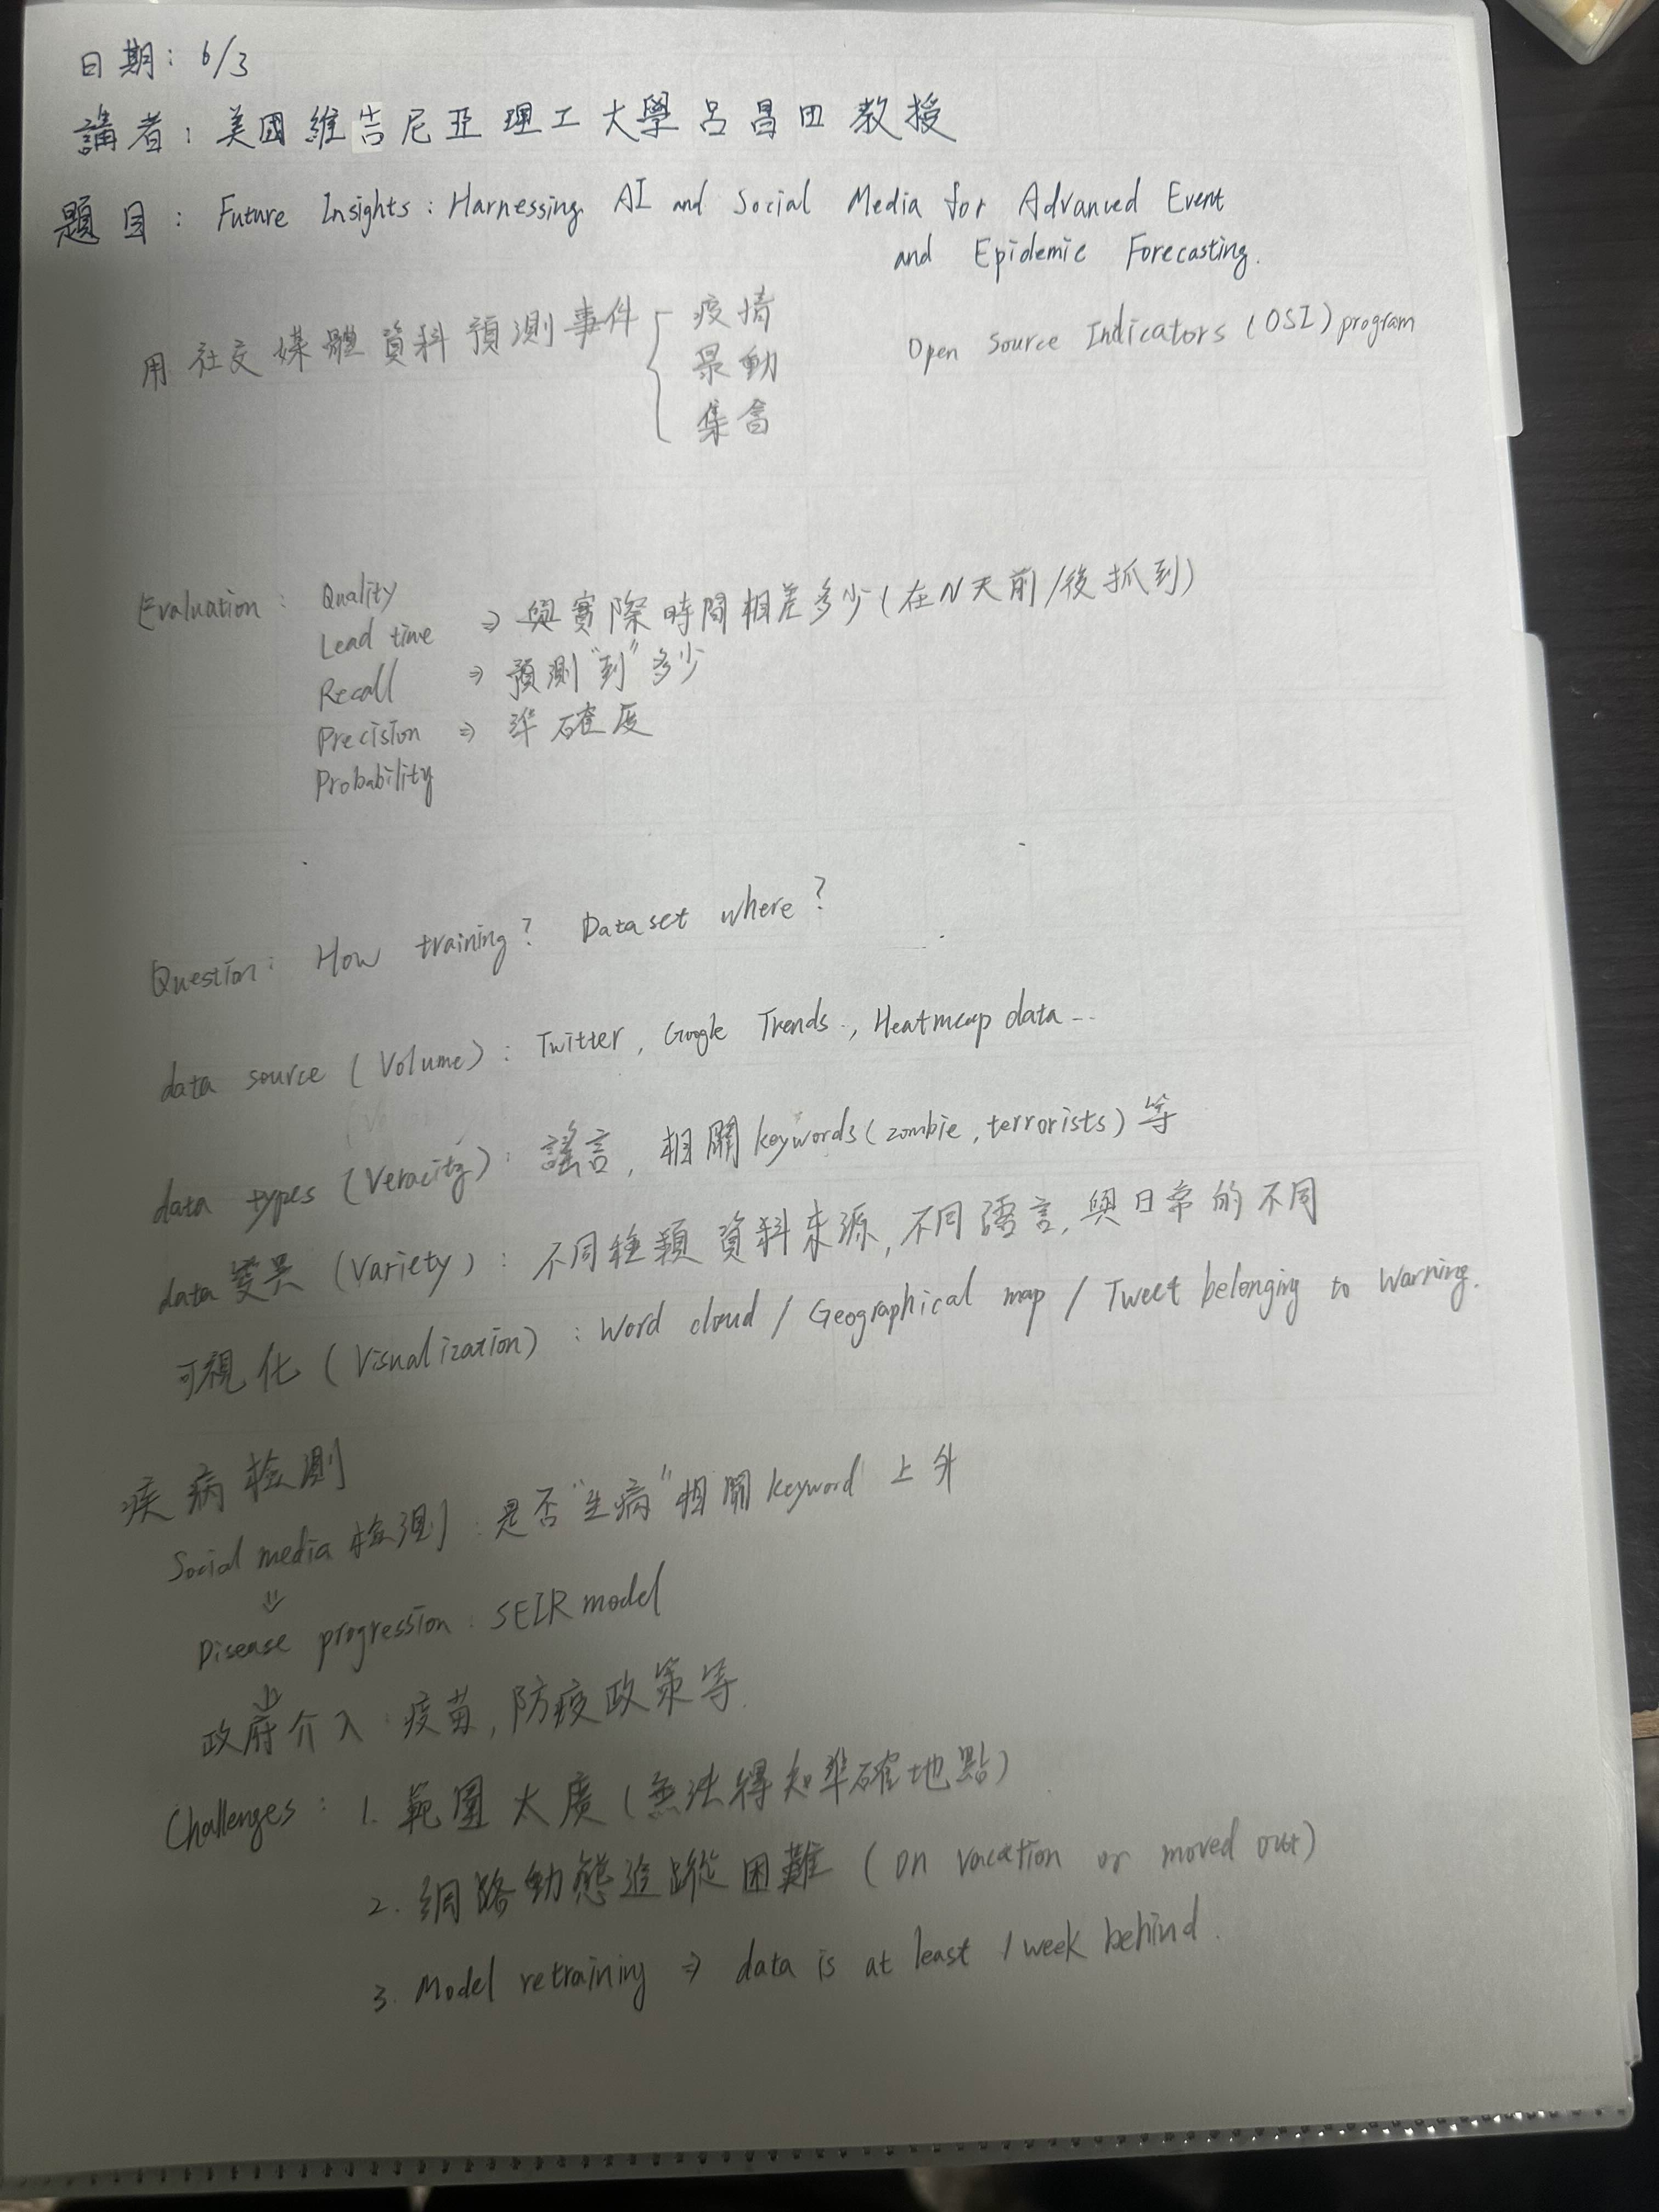 日期: 6/3
講者: 美國維吉尼亞理工大學呂昌田教授
題目: Future Insights: Harnessing AI and Social Media for Advanced Event
and Epidemic Forecasting.
用社交媒體資料預測事件 疫情
暴動
集會
Open Source Indicators (OSI) program
Evaluation: Quality
Lead time ⇒ 與實際時間相差多少(在N天前/後抓到)
Recall ⇒ 預測"到"多少
Precision ⇒ 準確度
Probability
Question: How training? Dataset where?
data source (Volume): Twitter, Google Trends., Heatmap data...
data types (Veracity): 謠言, 相關keywords(zombie, terrorists)等
data變異 (Variety): 不同種類資料來源, 不同語言, 與日常的不同
可視化 (Visualization): Word cloud / Geographical map / Tweet belonging to Warning.
疾病檢測
Social media 檢測: 是否"生病"相關keyword 上升
⇓
Disease progression: SEIR model
⇓
政府介入: 疫苗, 防疫政策等
Challenges: 1. 範圍太廣(無法得知準確地點)
2. 網路動態追蹤困難 (on vacation or moved out)
3. Model retraining ⇒ data is at least 1 week behind.